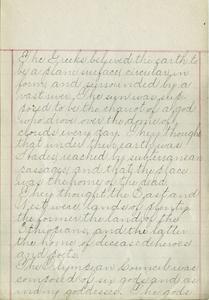 The Greeks believed the earth to
be a plane surface, circular in
form and surrounded by a
vast river. The sun was sup-
posed to be the chariot of a god
who drove over the dome of
clouds every day. They thought
that under the earth was
Hades reached by subterranean
passages and that this place
was the home of the dead.
They thought the East and
West were lands of plenty
the former the land of the
Ethiopians, and the latter
the home of deceased heroes
and poets.
The Olympian Council was
composed of six gods and as
many goddesses. The gods